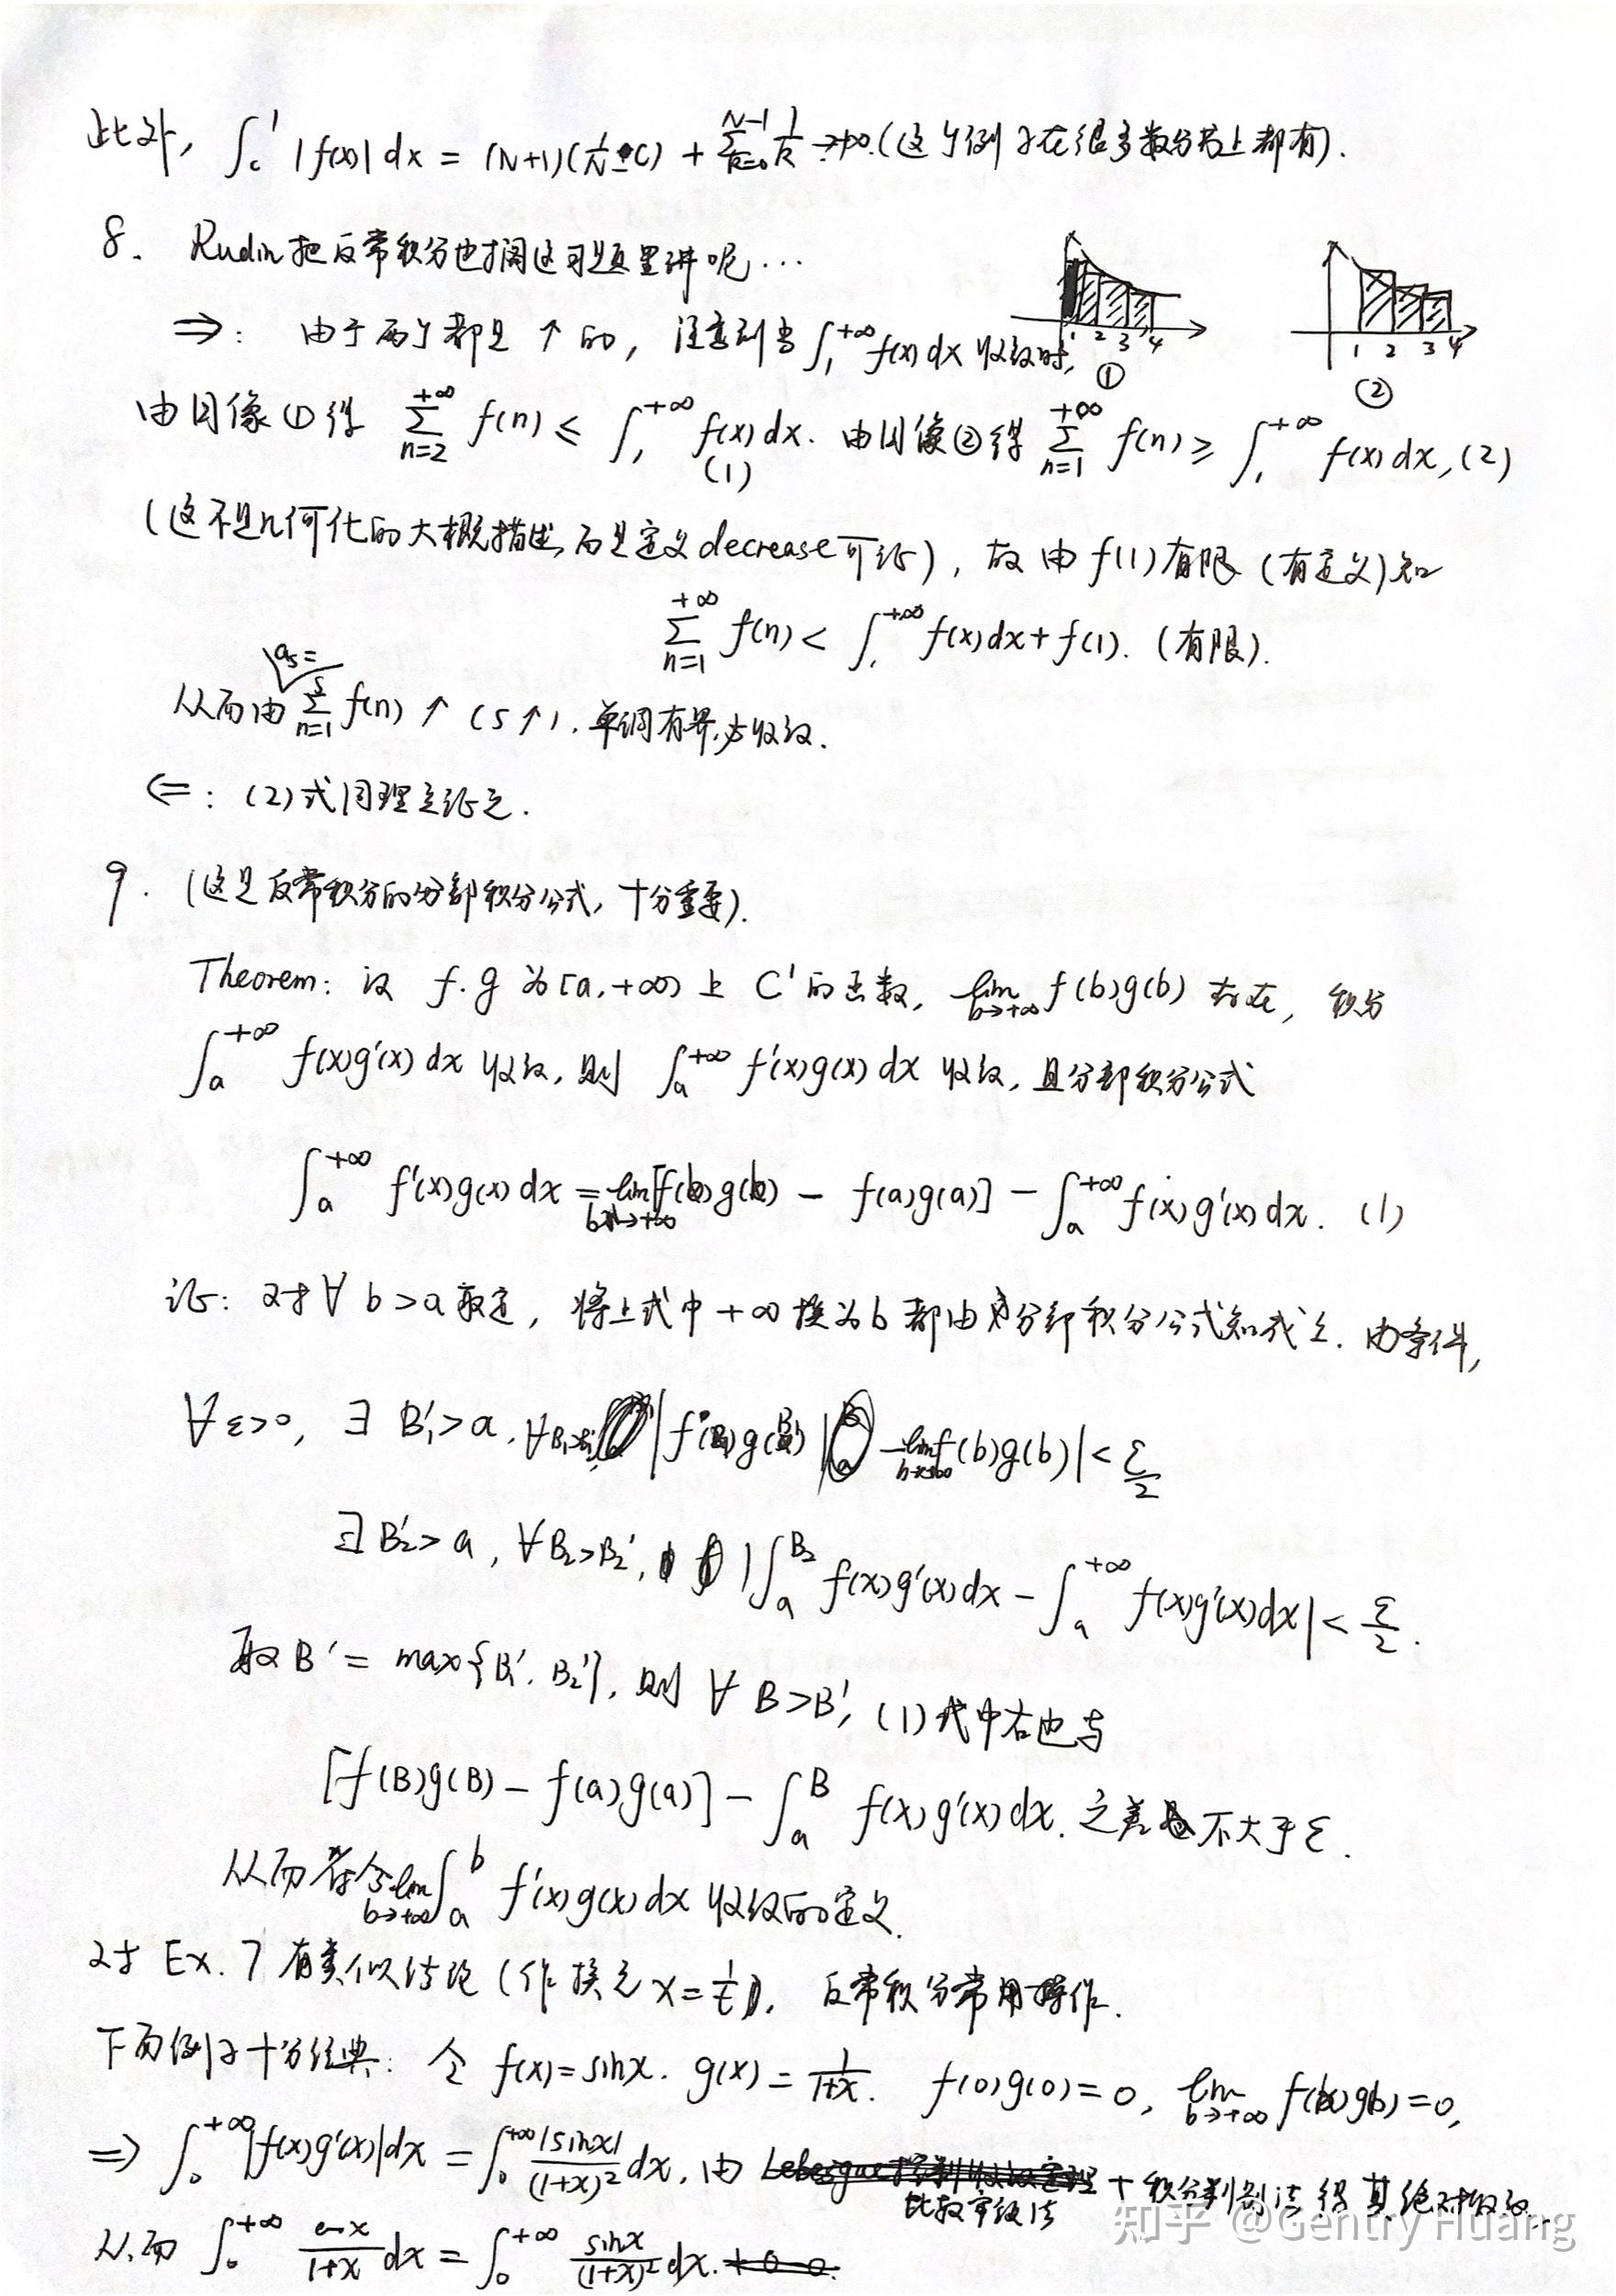 此外, ∫_c^1 |f(x)| dx = (N+1)(1/N - C) + Σ_{k=0}^{N-1} 1/k → +∞. (这个例子在很多数分书上都有).
8. Rudin把反常积分也搁这习题里讲呢...
⇒: 由于两个都是↑的, 注意到当 ∫_1^{+∞} f(x) dx 收敛时,
1 2 3 4 ①
1 2 3 4 ②
由图像①得 Σ_{n=2}^{+∞} f(n) ≤ ∫_1^{+∞} f(x) dx. (1) 由图像②得 Σ_{n=1}^{+∞} f(n) ≥ ∫_1^{+∞} f(x) dx, (2)
(这不是几何化的大概描述, 而是定义decrease可证), 故由 f(1) 有限 (有定义) 知
Σ_{n=1}^{+∞} f(n) < ∫_1^{+∞} f(x) dx + f(1). (有限).
从而由 a_s = Σ_{n=1}^{s} f(n) ↑ (s↑), 单调有界必收敛.
⇐: (2)式同理立证之.
9. (这是反常积分的分部积分公式, 十分重要).
Theorem: 设 f. g 为[a, +∞) 上 C' 的函数, lim_{b→+∞} f(b)g(b) 存在, 积分
∫_a^{+∞} f(x)g'(x) dx 收敛, 则 ∫_a^{+∞} f'(x)g(x) dx 收敛, 且分部积分公式
∫_a^{+∞} f'(x)g(x) dx = lim_{b→+∞} [f(b)g(b) - f(a)g(a)] - ∫_a^{+∞} f(x)g'(x) dx. (1)
证: 对∀ b>a 取定, 将上式中 +∞ 换为 b 都由分部积分公式知成立. 由条件,
∀ε>0, ∃ B₁'>a, ∀B₁>B₁', |f(B₁)g(B₁) - lim_{b→+∞} f(b)g(b)| < ε/2
∃ B₂'>a, ∀B₂>B₂', |∫_a^{B₂} f(x)g'(x) dx - ∫_a^{+∞} f(x)g'(x) dx| < ε/2.
取 B' = max{B₁', B₂'}, 则 ∀ B>B', (1)式中右边与
[f(B)g(B) - f(a)g(a)] - ∫_a^B f(x)g'(x) dx. 之差不大于ε.
从而符合 lim_{b→+∞} ∫_a^b f'(x)g(x) dx 收敛的定义.
对 Ex. 7 有类似结论 (作换元 x = 1/t), 反常积分常用操作.
下面例子十分经典: 令 f(x) = sinx. g(x) = 1/(1+x). f(0)g(0) = 0, lim_{b→+∞} f(b)g(b) = 0,
⇒ ∫_0^{+∞} |f(x)g'(x)| dx = ∫_0^{+∞} |sinx|/(1+x)² dx, 由 比较审敛法 + 积分判别法得其绝对收敛.
从而 ∫_0^{+∞} cosx/(1+x) dx = ∫_0^{+∞} sinx/(1+x)² dx.
知乎 @Gentry Huang